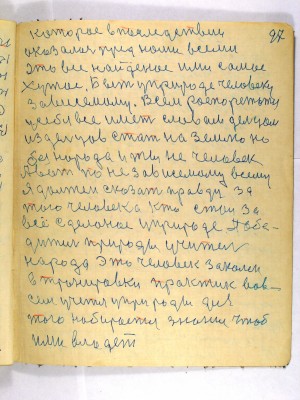 97
которое впоследствии
оказался пред нами всеми
это все найденое ими самое
Худшее. Быт у природе человеку
зависемому. Всем распоретится
усебя все имет словам делцом
из делцов стат на Землю но
без народа и ти не человек
Я быт по не зависемому всему
Я должен сказат правду за
того человека кто стои за
всё сделоное у природе Я побе-
дител природы учител
народа это человек закалки
в тренеровки практик вов-
сем учится у природы для
того набирается знании чтоб
ими владет